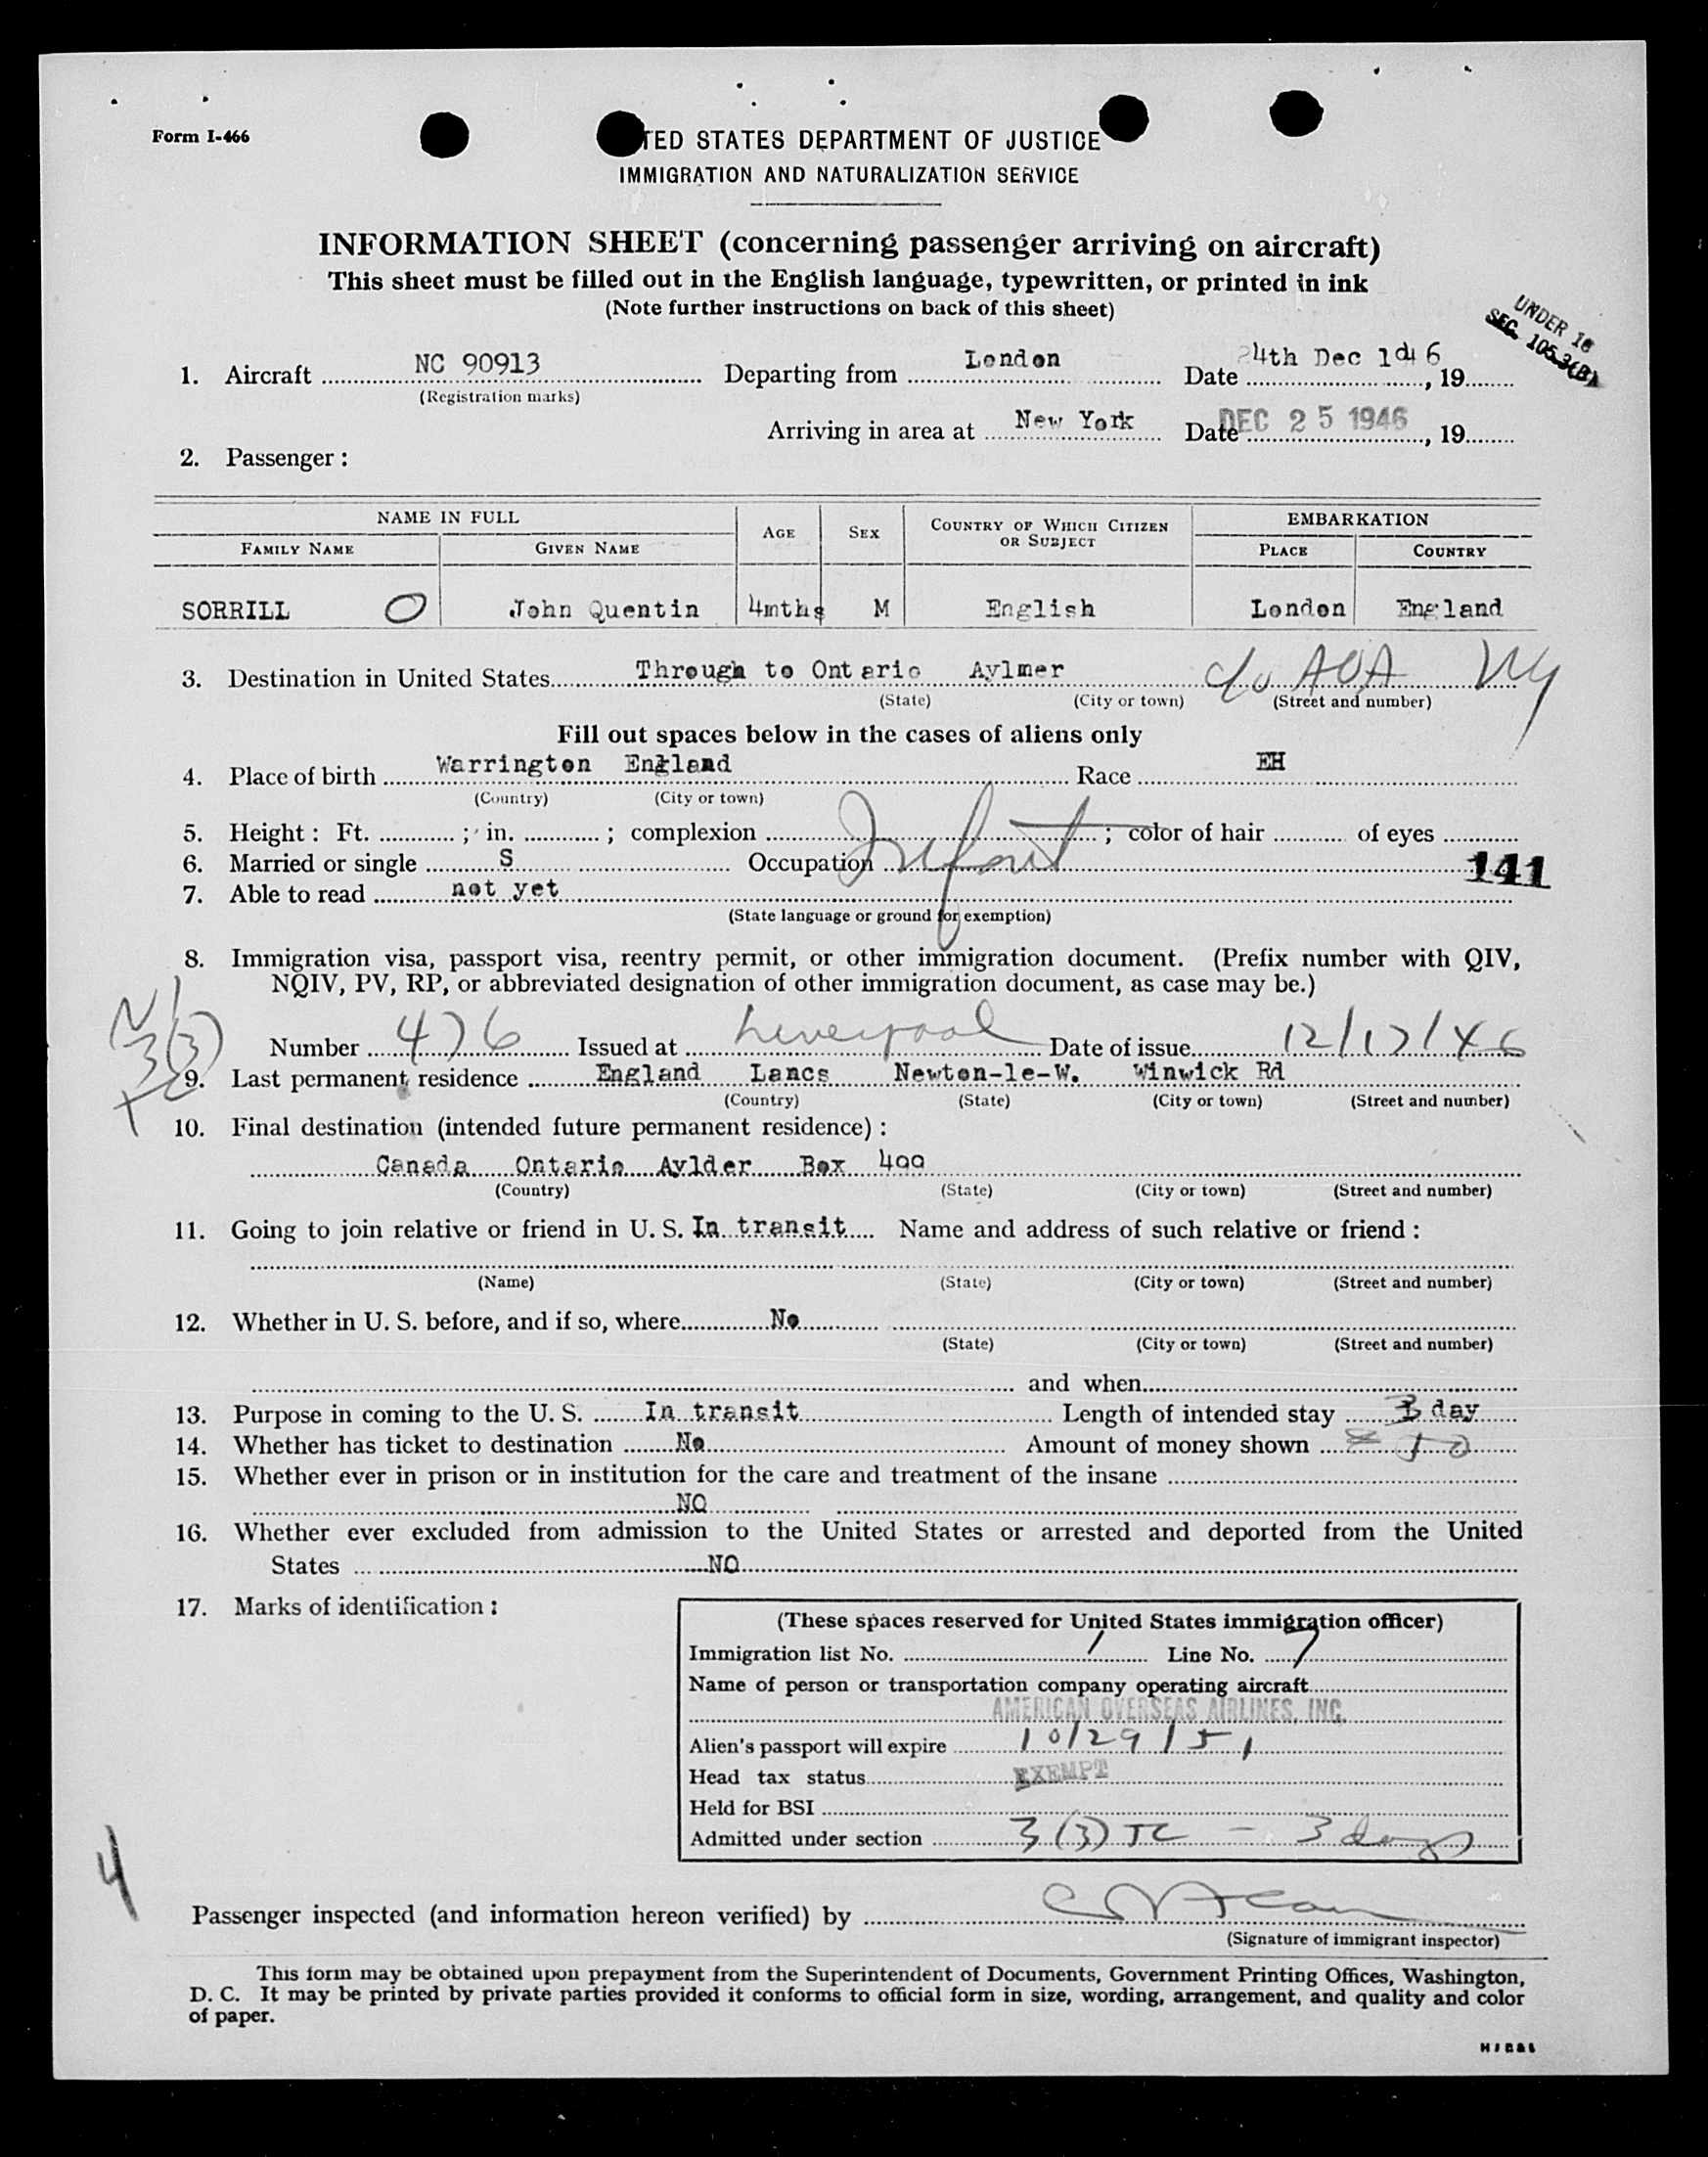 Form I-466
TED STATES DEPARTMENT OF JUSTICE
IMMIGRATION AND NATURALIZATION SERVICE
INFORMATION SHEET (concerning passenger arriving on aircraft)
This sheet must be filled out in the English language, typewritten, or printed in ink
(Note further instructions on back of this sheet)
UNDER 16
SEC. 105.3(B)
1. Aircraft NC 90913 Departing from London Date 24th Dec 1946, 19
(Registration marks)
Arriving in area at New York Date DEC 25 1946, 19
2. Passenger:
NAME IN FULL AGE SEX COUNTRY OF WHICH CITIZEN OR SUBJECT EMBARKATION
FAMILY NAME GIVEN NAME PLACE COUNTRY
SORRILL O John Quentin 4mths M English London England
3. Destination in United States Through to Ontario Aylmer c/o AOA NY
(State) (City or town) (Street and number)
Fill out spaces below in the cases of aliens only
4. Place of birth Warrington England Race EH
(Country) (City or town)
5. Height: Ft. ; in. ; complexion ; color of hair of eyes
6. Married or single S Occupation Infant
141
7. Able to read not yet
(State language or ground for exemption)
8. Immigration visa, passport visa, reentry permit, or other immigration document. (Prefix number with QIV,
NQIV, PV, RP, or abbreviated designation of other immigration document, as case may be.)
3(3)
Number 476 Issued at Liverpool Date of issue 12/17/46
9. Last permanent residence England Lancs Newton-le-W. Winwick Rd
(Country) (State) (City or town) (Street and number)
10. Final destination (intended future permanent residence):
Canada Ontario Aylder Box 499
(Country) (State) (City or town) (Street and number)
11. Going to join relative or friend in U. S. In transit Name and address of such relative or friend:
(Name) (State) (City or town) (Street and number)
12. Whether in U. S. before, and if so, where No
(State) (City or town) (Street and number)
and when
13. Purpose in coming to the U. S. In transit Length of intended stay 3 day
14. Whether has ticket to destination No Amount of money shown
15. Whether ever in prison or in institution for the care and treatment of the insane
NO
16. Whether ever excluded from admission to the United States or arrested and deported from the United
States NO
17. Marks of identification:
(These spaces reserved for United States immigration officer)
Immigration list No. 1 Line No. 7
Name of person or transportation company operating aircraft
AMERICAN OVERSEAS AIRLINES, INC.
Alien's passport will expire 10/29/51
Head tax status EXEMPT
Held for BSI
Admitted under section 3(3) TC - 3 days
4
Passenger inspected (and information hereon verified) by
(Signature of immigrant inspector)
This form may be obtained upon prepayment from the Superintendent of Documents, Government Printing Offices, Washington,
D. C. It may be printed by private parties provided it conforms to official form in size, wording, arrangement, and quality and color
of paper.